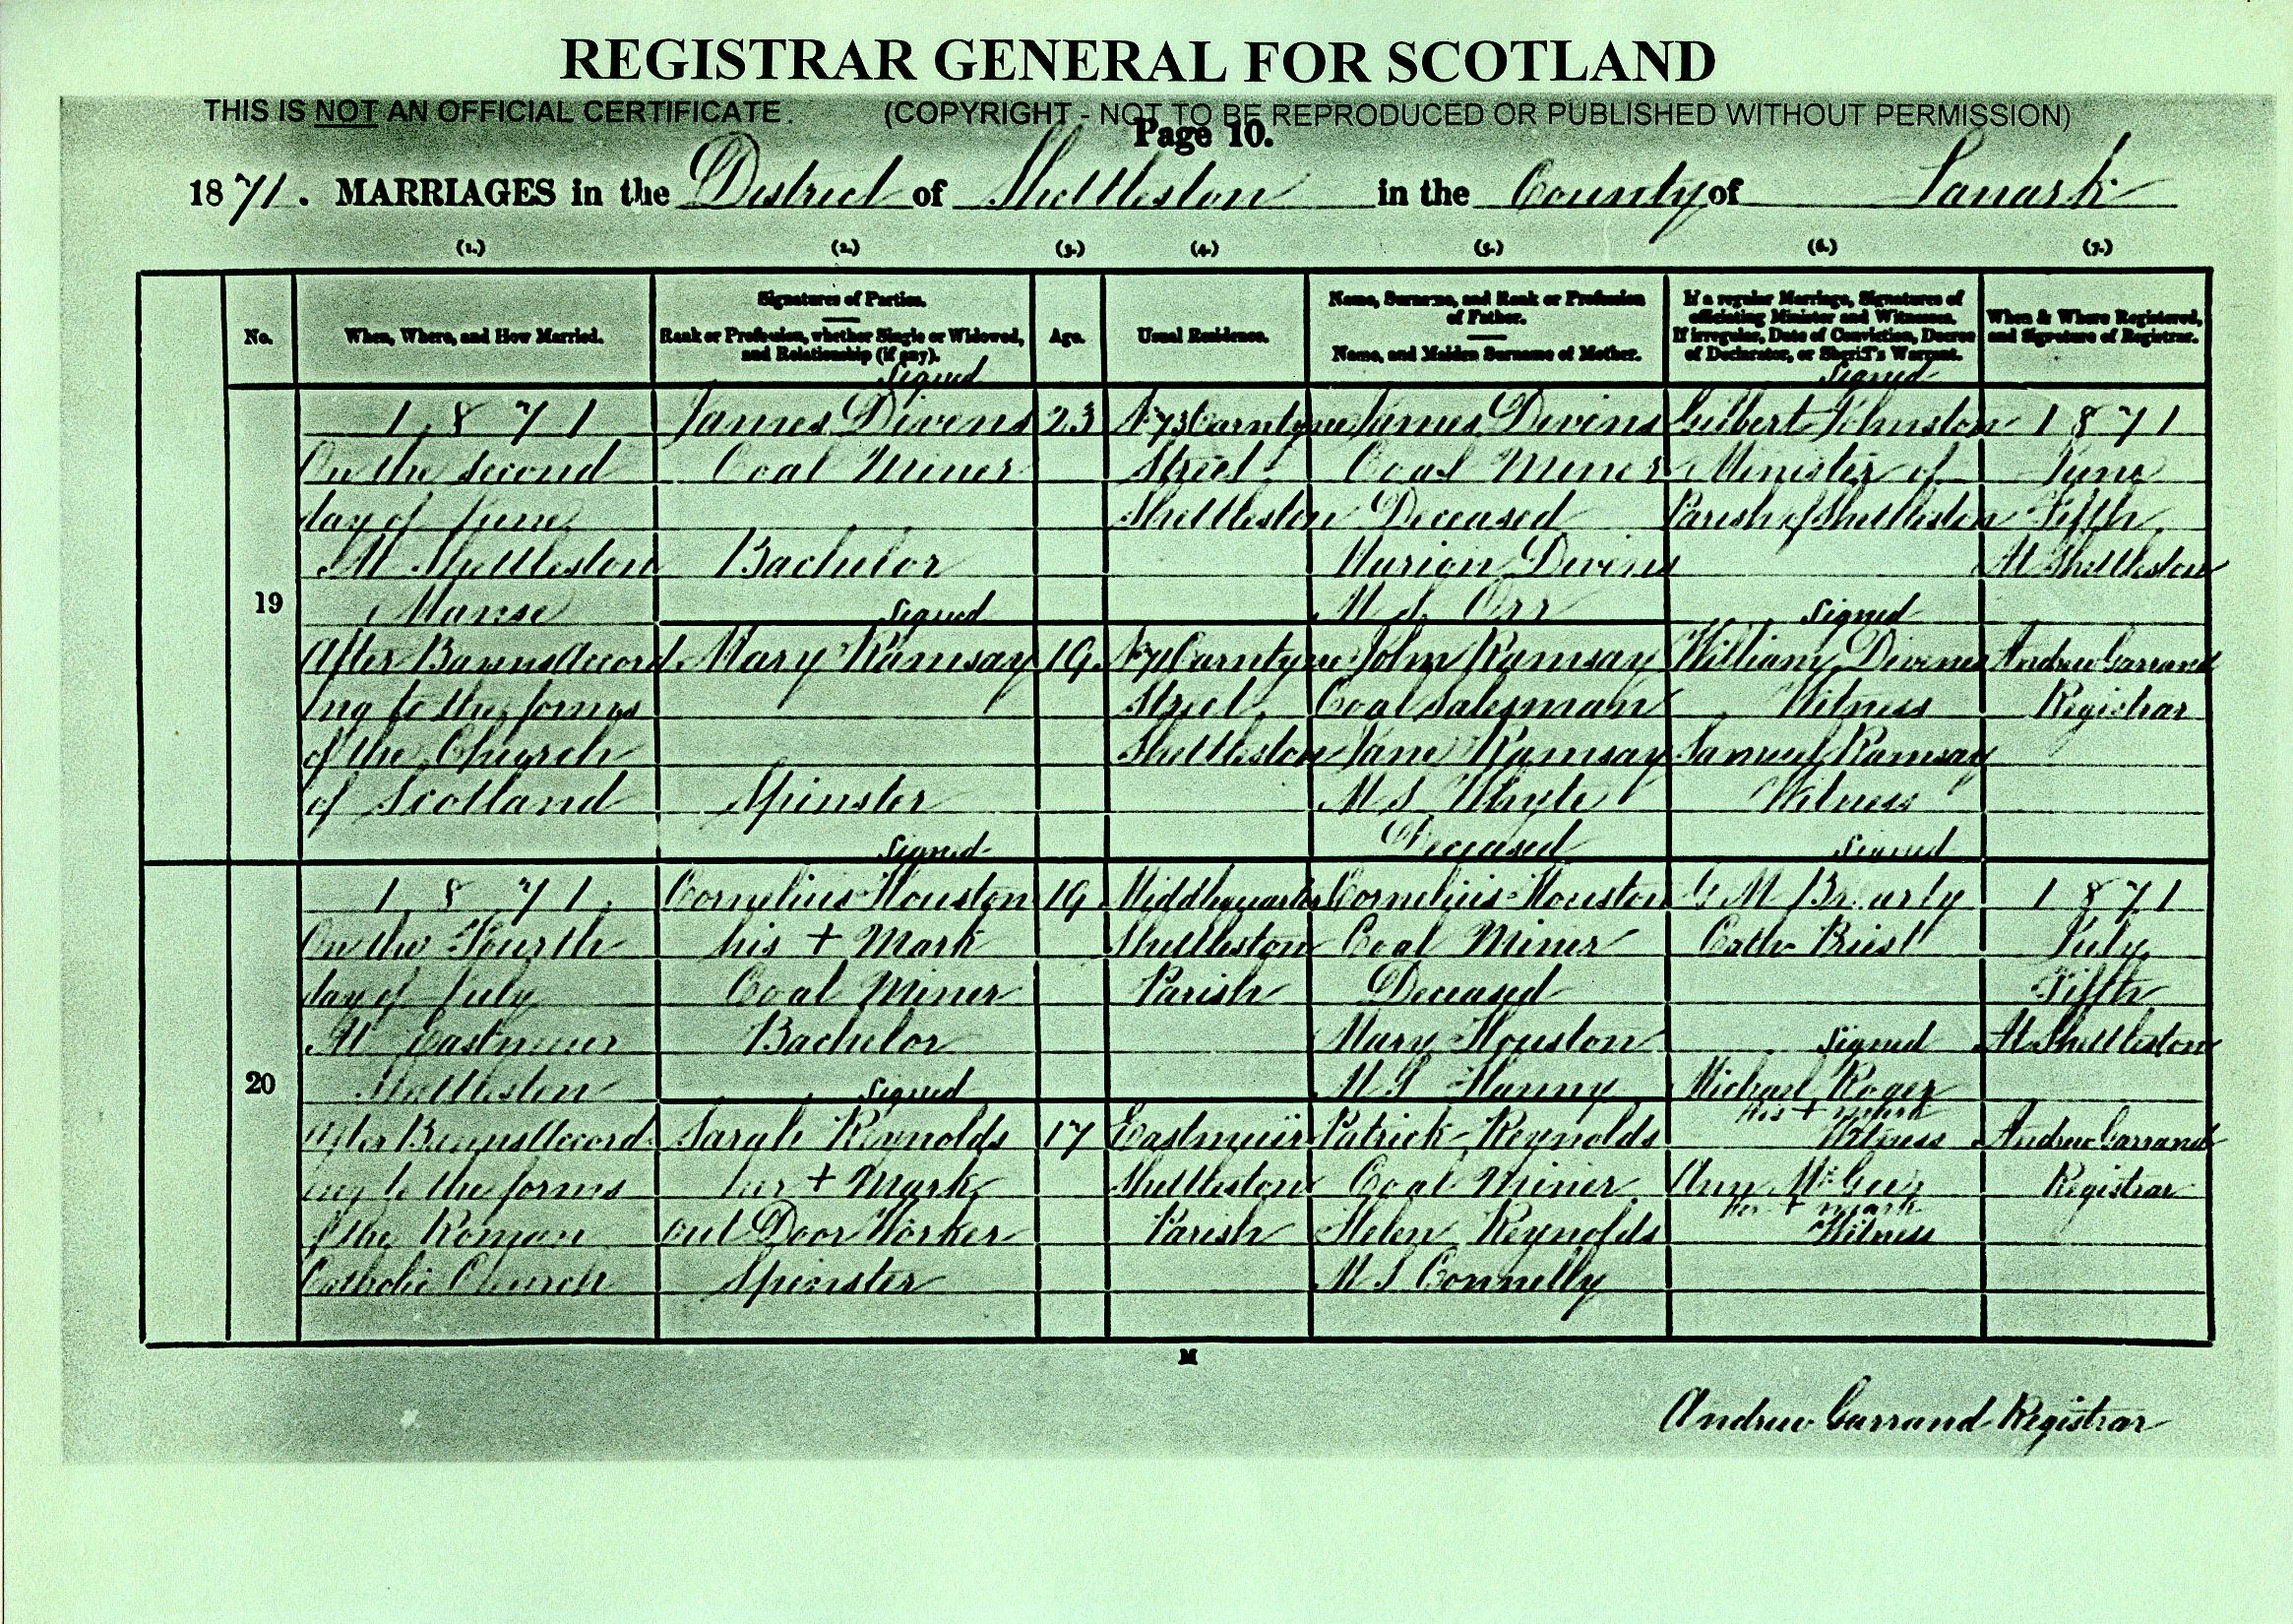 REGISTRAR GENERAL FOR SCOTLAND
THIS IS NOT AN OFFICIAL CERTIFICATE. (COPYRIGHT - NOT TO BE REPRODUCED OR PUBLISHED WITHOUT PERMISSION)
Page 10.
1871. MARRIAGES in the District of Shettleston in the County of Lanark
(1.) (2.) (3.) (4.) (5.) (6.) (7.)
No.
When, Where, and How Married.
Signatures of Parties.
Rank or Profession, whether Single or Widowed,
and Relationship (if any).
Age.
Usual Residence.
Name, Surname, and Rank or Profession
of Father.
Name, and Maiden Surname of Mother.
If a regular Marriage, Signatures of
officiating Minister and Witnesses.
If irregular, Date of Conviction, Decree
of Declarator, or Sheriff's Warrant.
When & Where Registered,
and Signature of Registrar.
19
1871
On the second
day of June
At Shettleston
Manse
After Banns Accord
ing to the forms
of the Church
of Scotland
Signed
James Divens
Coal Miner
Bachelor
Signed
Mary Ramsay
Spinster
23
19
No 73 Carntyne
Street
Shettleston
Carntyne
Street
Shettleston
James Divens
Coal Miner
Deceased
Marion Divens
M.S. Orr
John Ramsay
Coal Salesman
Jane Ramsay
M S Whyte
Deceased
Signed
Gilbert Johnston
Minister of
Parish of Shettleston
Signed
William Divens
Witness
Samuel Ramsay
Witness
1871
June
Fifth
At Shettleston
Andrew Garrand
Registrar
20
1871
On the Fourth
day of July
At Eastmuir
Shettleston
After Banns Accord
ing to the forms
of the Roman
Catholic Church
Signed
Cornelius Houston
his + Mark
Coal Miner
Bachelor
Signed
Sarah Reynolds
her + Mark
Out Door Worker
Spinster
19
17
Middlequarter
Shettleston
Parish
Eastmuir
Shettleston
Parish
Cornelius Houston
Coal Miner
Deceased
Mary Houston
M S
Patrick Reynolds
Coal Miner
Helen Reynolds
M S Connelly
Signed
Cath Priest
Signed
Michael Roger
his + mark
Witness
Ann McGee
her + mark
Witness
1871
July
Fifth
At Shettleston
Andrew Garrand
Registrar
M
Andrew Garrand Registrar